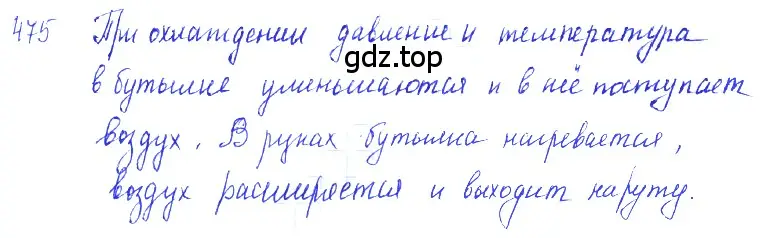 475 При охлаждении давление и температура
gdz.top
в бутылке уменьшаются и в неё поступает
воздух. В руках бутылка нагревается,
воздух расширяется и выходит наружу.